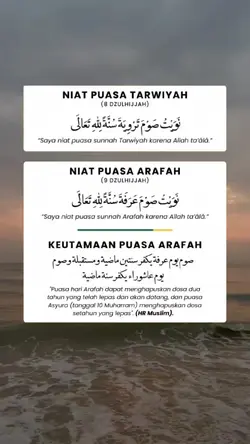 NIAT PUASA TARWIYAH
(8 DZULHIJJAH)
نَوَيْتُ صَوْمَ تَرْوِيَةَ سُنَّةً لِلّٰهِ تَعَالَى
"Saya niat puasa sunnah Tarwiyah karena Allah ta'âlâ."
NIAT PUASA ARAFAH
(9 DZULHIJJAH)
نَوَيْتُ صَوْمَ عَرَفَةَ سُنَّةً لِلّٰهِ تَعَالَى
"Saya niat puasa sunnah Arafah karena Allah ta'âlâ."
KEUTAMAAN PUASA ARAFAH
صوم يوم عرفة يكفر سنتين ماضية ومستقبلة وصوم
يوم عاشوراء يكفر سنة ماضية
"Puasa hari Arafah dapat menghapuskan dosa dua
tahun yang telah lepas dan akan datang, dan puasa
Asyura (tanggal 10 Muharram) menghapuskan dosa
setahun yang lepas". (HR Muslim).